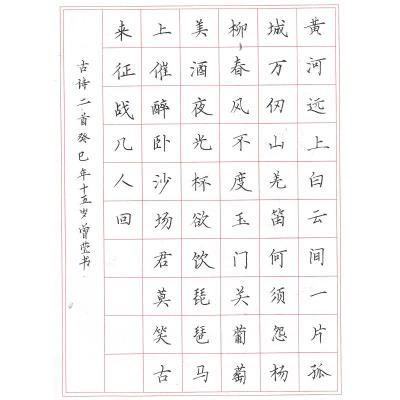 黄河远上白云间一片孤
城万仞山羌笛何须怨杨
柳春风不度玉门关葡萄
美酒夜光杯欲饮琵琶马
上催醉卧沙场君莫笑古
来征战几人回
古诗二首癸巳年十五岁曾莹书